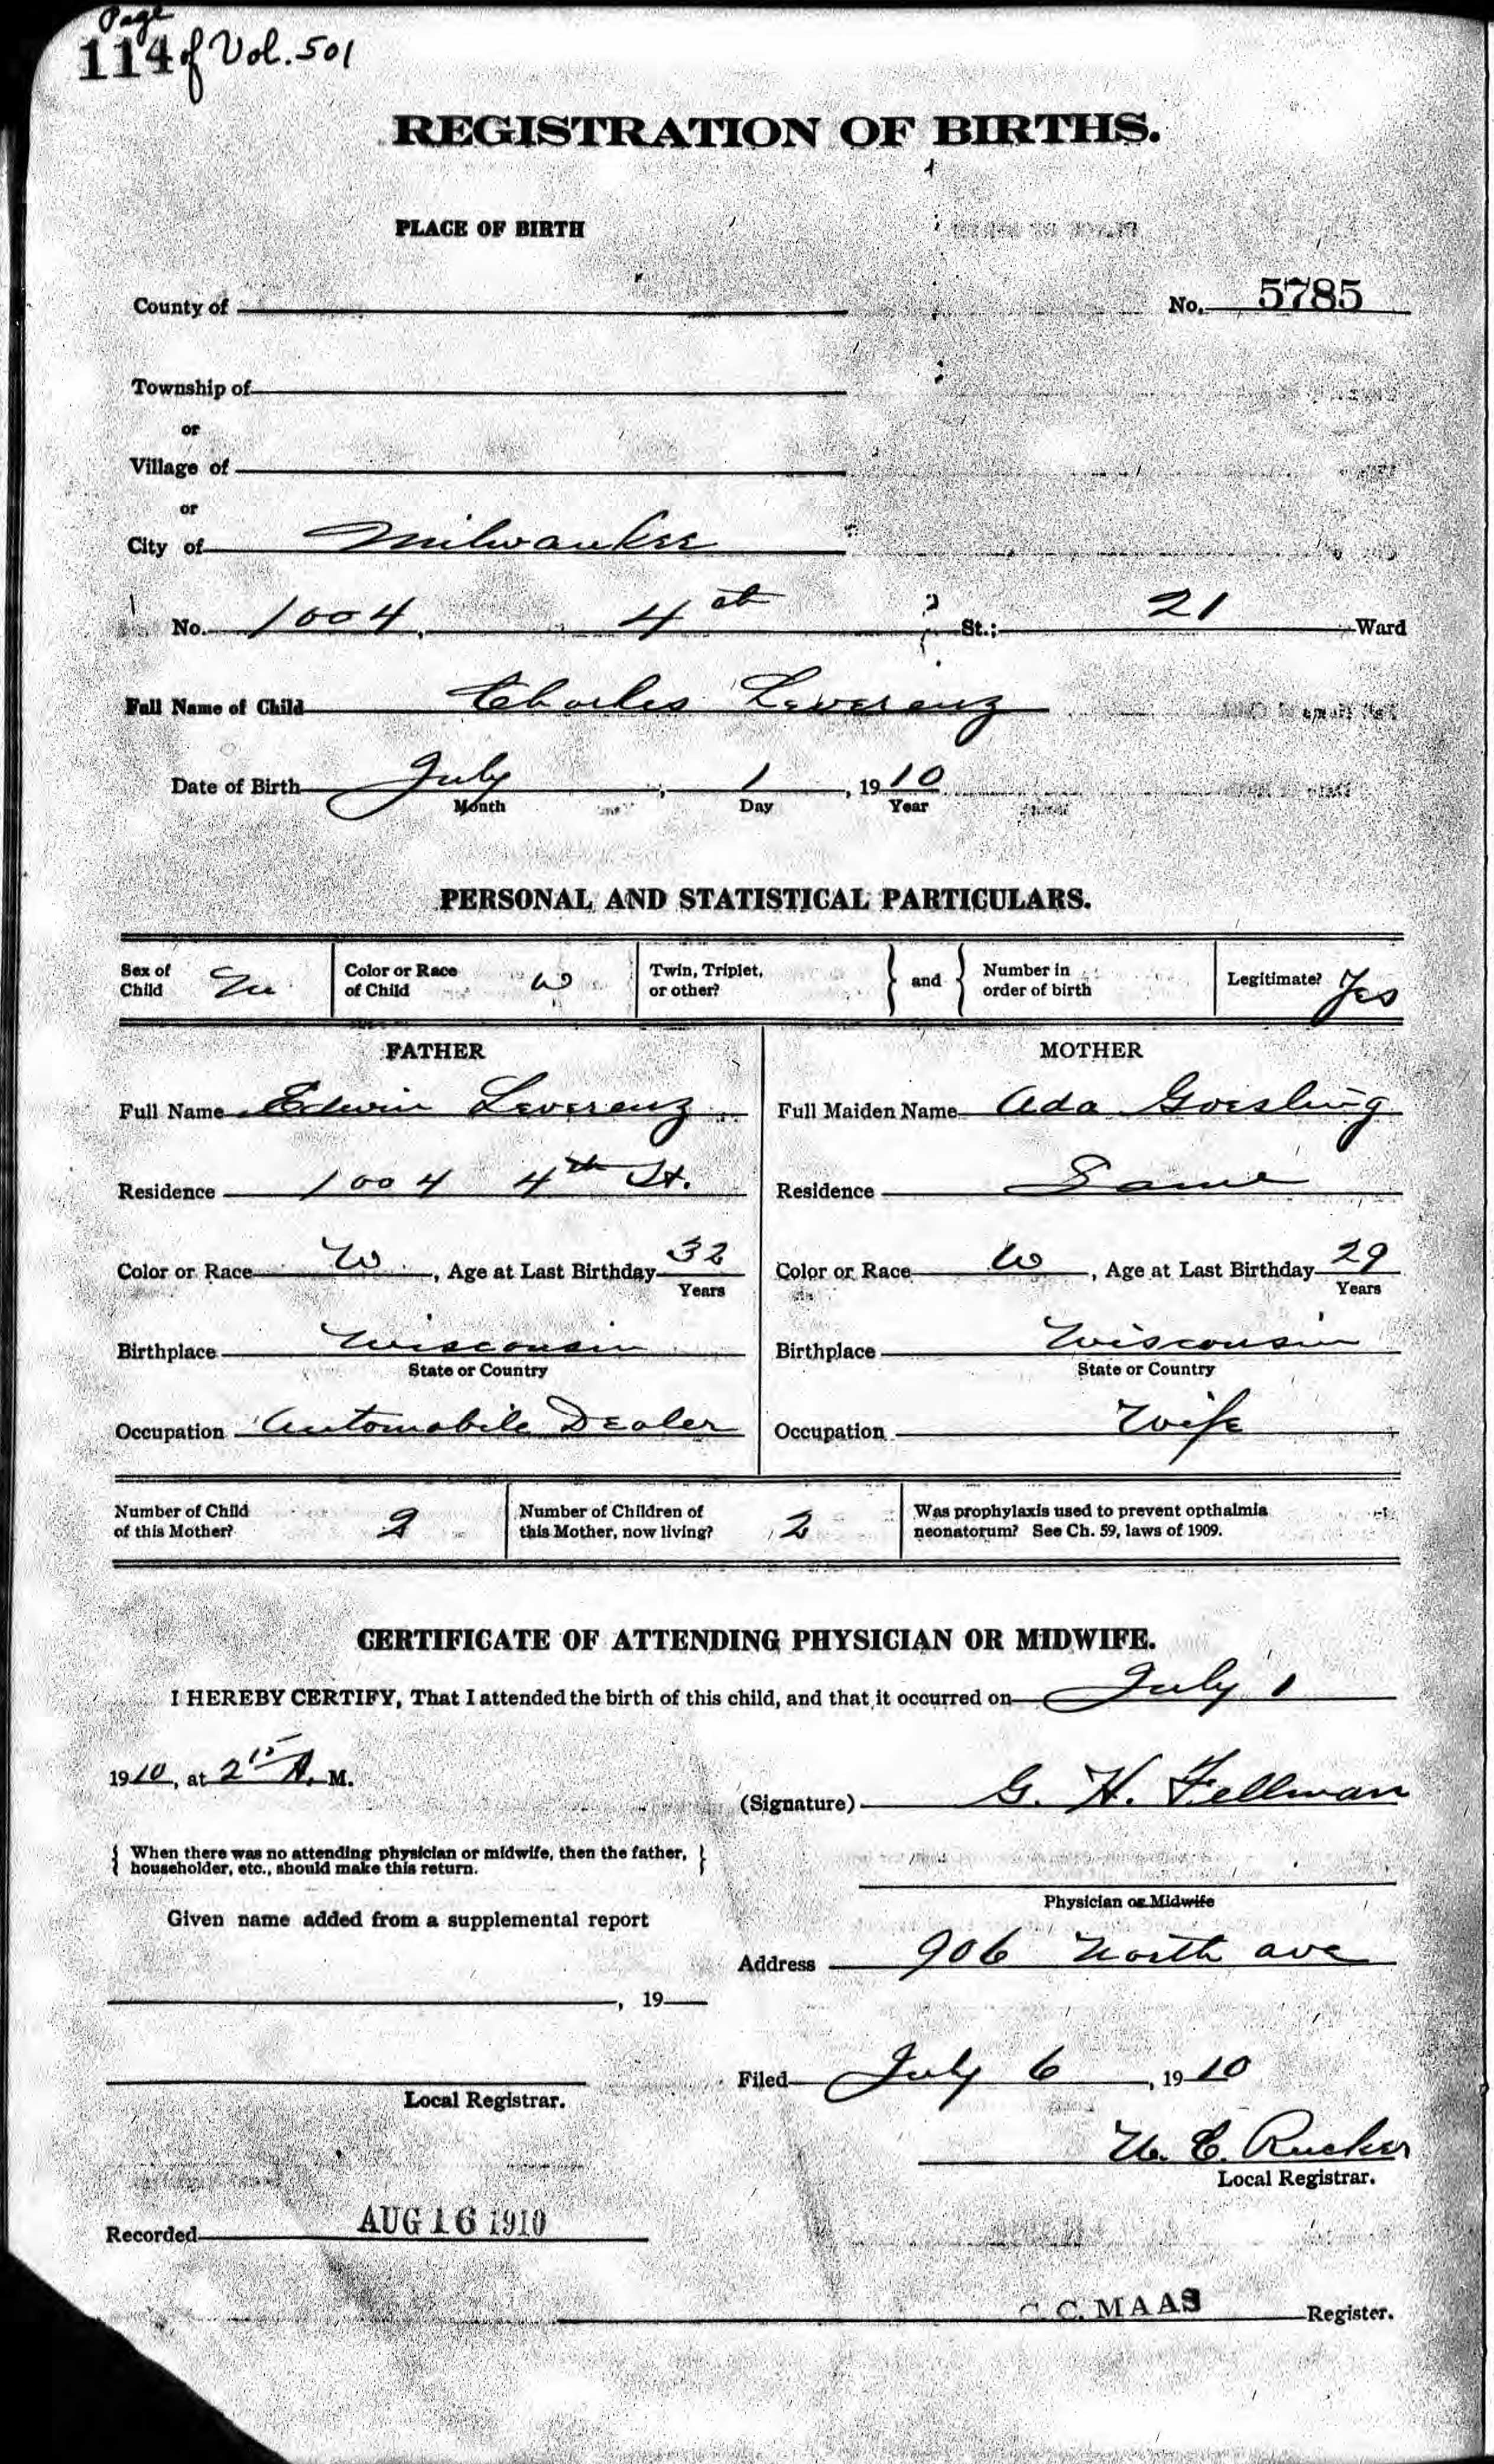 Page
114 of Vol. 501
REGISTRATION OF BIRTHS.
PLACE OF BIRTH
County of
No. 5785
Township of
or
Village of
or
City of Milwaukee
No. 1004 4th St.; 21 Ward
Full Name of Child Charles Leverenz
Date of Birth July, 1, 1910
Month Day Year
PERSONAL AND STATISTICAL PARTICULARS.
Sex of Child M Color or Race of Child W Twin, Triplet, or other? } and { Number in order of birth Legitimate? Yes
FATHER
Full Name Edwin Leverenz
Residence 1004 4th St.
Color or Race W, Age at Last Birthday 32
Years
Birthplace Wisconsin
State or Country
Occupation Automobile Dealer
MOTHER
Full Maiden Name Ada Goesling
Residence Same
Color or Race W, Age at Last Birthday 29
Years
Birthplace Wisconsin
State or Country
Occupation Wife
Number of Child of this Mother? 2 Number of Children of this Mother, now living? 2 Was prophylaxis used to prevent opthalmia neonatorum? See Ch. 59, laws of 1909.
CERTIFICATE OF ATTENDING PHYSICIAN OR MIDWIFE.
I HEREBY CERTIFY, That I attended the birth of this child, and that it occurred on July 1
1910, at 2 15 A. M.
(Signature) G. H. Fellman
{ When there was no attending physician or midwife, then the father, householder, etc., should make this return. }
Physician or Midwife
Given name added from a supplemental report
Address 906 North ave
, 19
Filed July 6, 1910
Local Registrar.
W. C. Rucker
Local Registrar.
Recorded AUG 16 1910
C. C. MAAS Register.